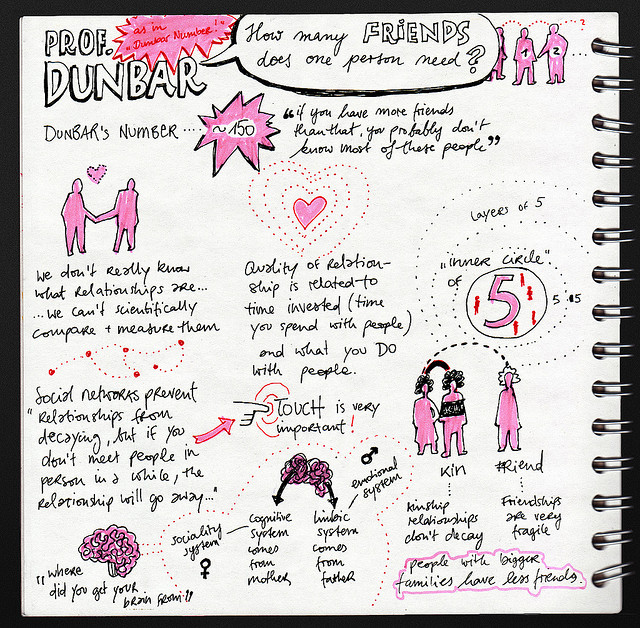 PROF. DUNBAR
as in
"Dunbar Number!"
How many FRiENDS
does one person need?
1 2 ?
DUNBAR'S NUMBER ···· ~150
"if you have more friends
than that, you probably don't
know most of these people"
we don't really know
what relationships are...
...we can't scientifically
compare + measure them
Quality of relation-
ship is related to
time invested (time
you spend with people)
and what you DO
with people.
Layers of 5
"inner circle"
OF
5
5 15
Social networks prevent
"relationships from
decaying, but if you
don't meet people in
person in a while, the
relationship will go away..."
TOUCH is very
important!
kin
friend
kinship
relationships
don't decay
Friendships
are very
fragile
people with bigger
families have less friends.
sociality
system
♀
cognitive
system
comes
from
mother
♂
emotional
system
limbic
system
comes
from
father
"where
did you get your
brain from?"